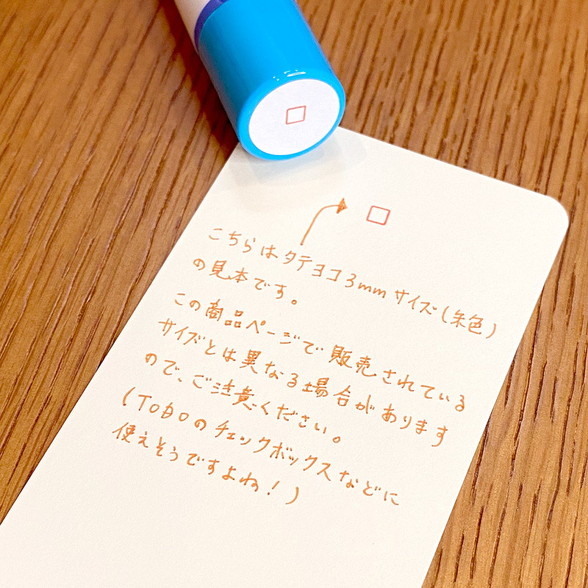 こちらはタテヨコ3mmサイズ(朱色)
の見本です。
この商品ページで販売されている
サイズとは異なる場合があります
ので、ご注意ください。
(TODOのチェックボックスなどに
使えそうですよね！)